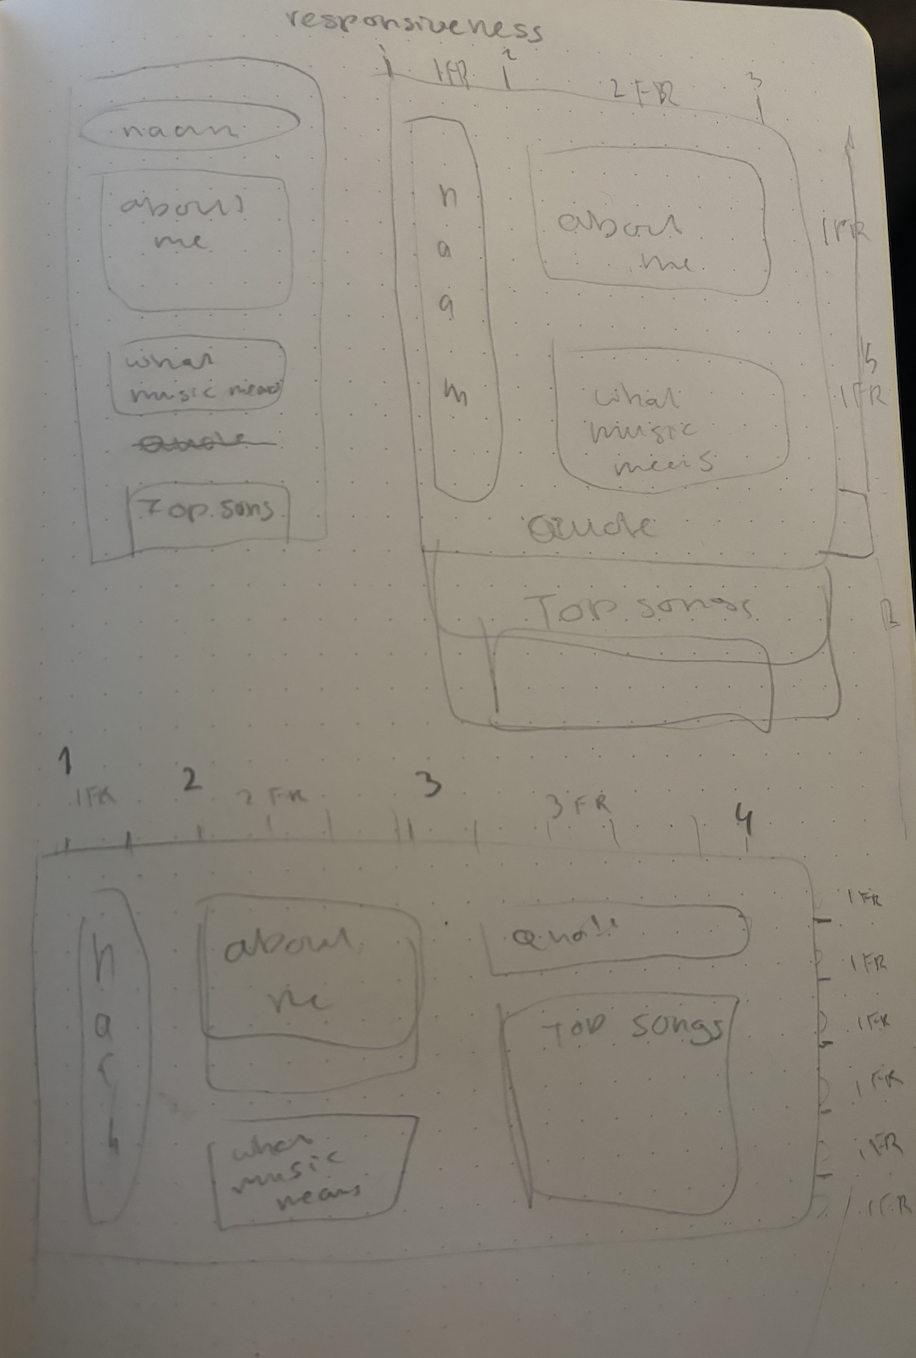 responsiveness
naam
about
me
what
music means
Quote
Top songs
1 2 3
1FR 2FR
n
a
a
m
about
me
what
music
means
Quote
Top songs
1FR
1FR
1 2 3 4
1FR 2 FR 3 FR
n
a
about
me
what
music
means
Quote
Top songs
1FR
1FR
1FR
1FR
1FR
1FR